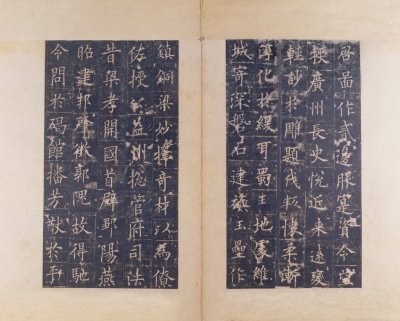 作貳邊服寔資令望
授廣州長史悅近來遠變
輕訬於雕題伐叛懷柔漸
淳化於緩耳蜀王地處維
城寄深磐石建旟玉壘作
鎮銅梁妙擇奇材以為僚
佐授公益州總管府司法
昔梁孝開國首辟鄒陽燕
昭建邦肇徵郭隗故得馳
令問於碣館播芳猷於平